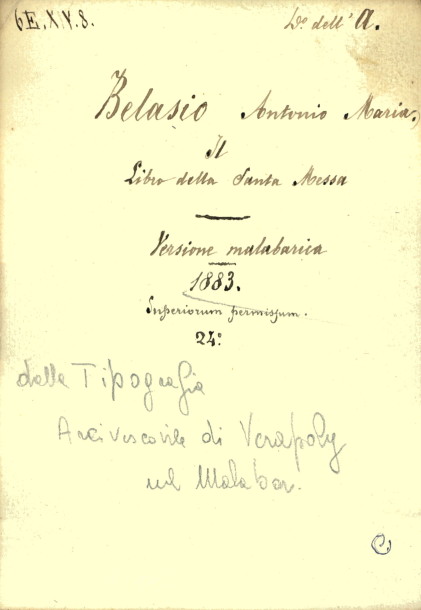 6E.X.V.8.
Do. dell' A.
Belasio Antonio Maria.
Il
Libro della Santa Messa
Versione malabarica
1883.
Superiorum permissum.
24:
dalla Tipografia
Arcivescovile di Verapoly
nel Malabar.
C